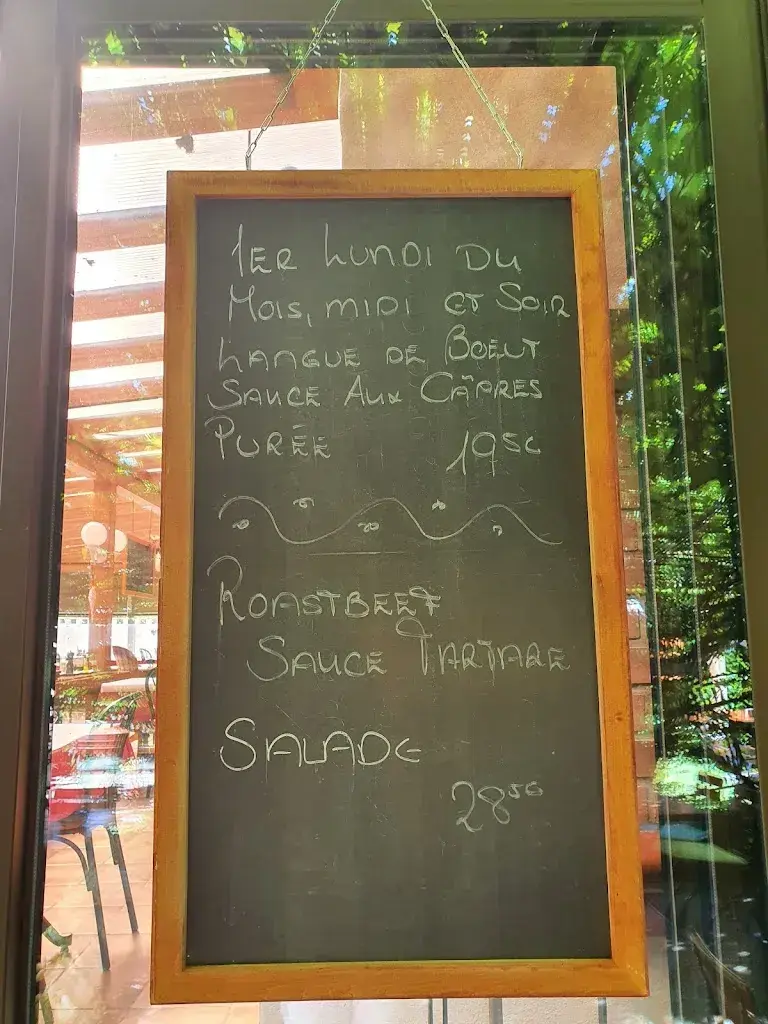 1ER LUNDI DU
MOIS, MIDI ET SOIR
LAANGUE DE BOEUF
SAUCE AUX CÂPRES
PURÉE 19 50
ROASTBEEF
SAUCE TARTARE
SALADE
28 50